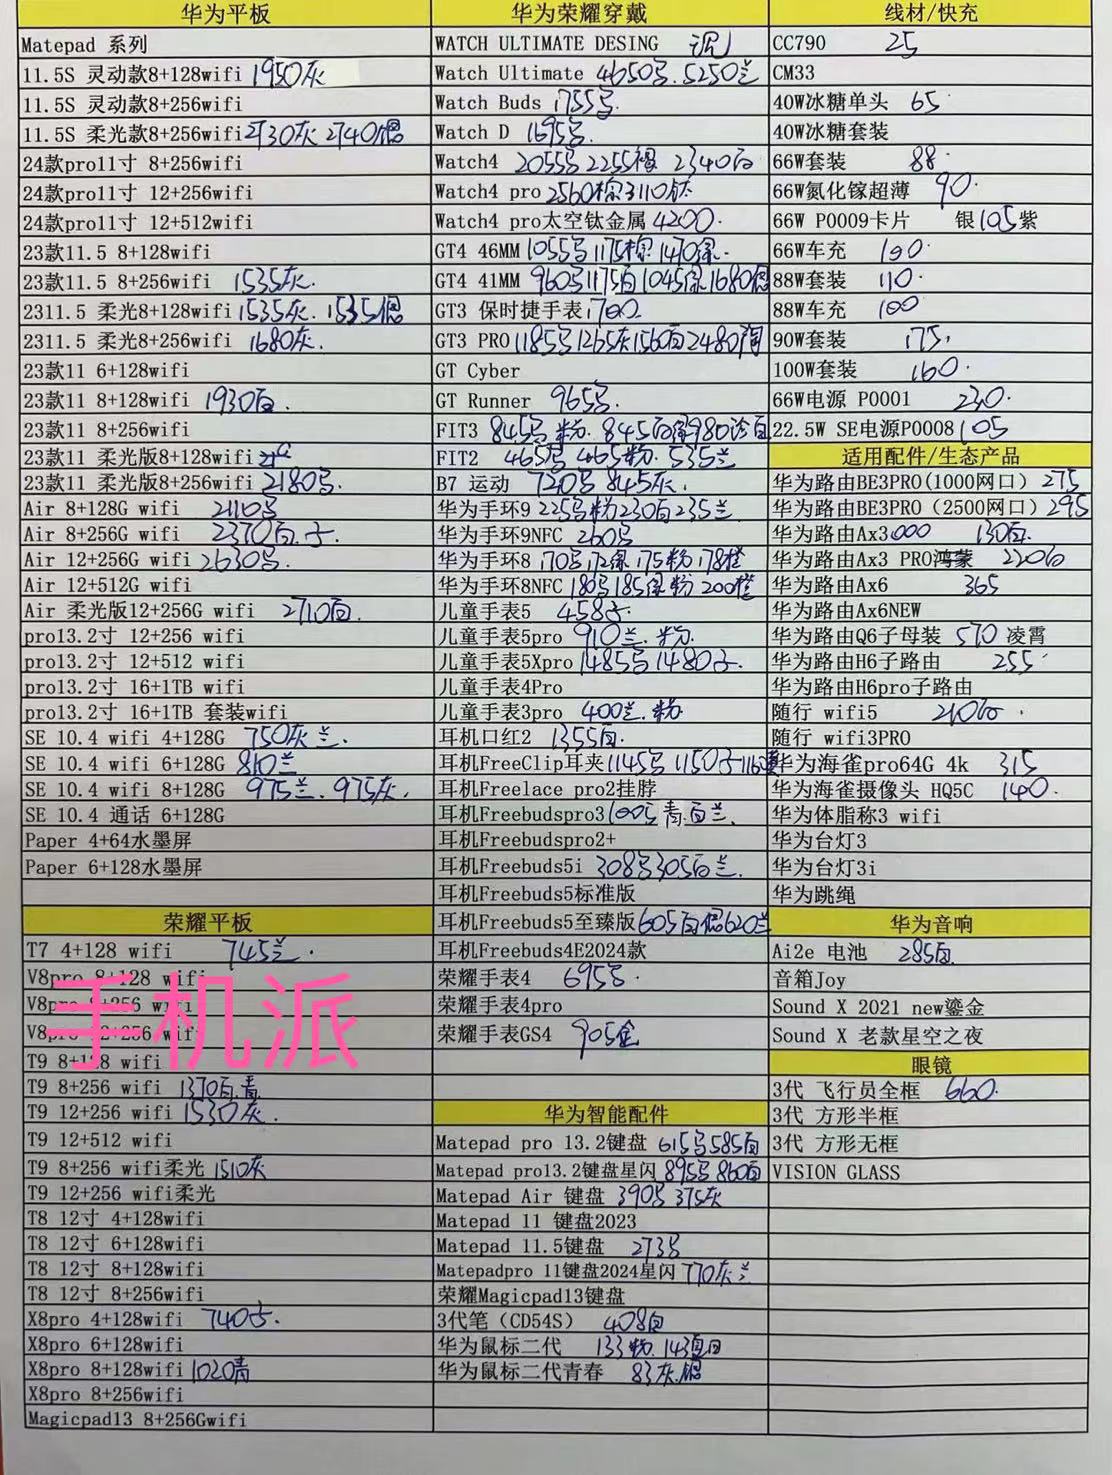 华为平板
Matepad 系列
11.5S 灵动款8+128wifi 1950灰
11.5S 灵动款8+256wifi
11.5S 柔光款8+256wifi
24款pro11寸 8+256wifi
24款pro11寸 12+256wifi
24款pro11寸 12+512wifi
23款11.5 8+128wifi
23款11.5 8+256wifi 1535灰.
2311.5 柔光8+128wifi 1535灰.
2311.5 柔光8+256wifi 1680灰.
23款11 6+128wifi
23款11 8+128wifi 1930白.
23款11 8+256wifi
23款11 柔光版8+128wifi
23款11 柔光版8+256wifi 2180
Air 8+128G wifi 2110
Air 8+256G wifi 2370白.
Air 12+256G wifi 2630
Air 12+512G wifi
Air 柔光版12+256G wifi 2710白
pro13.2寸 12+256 wifi
pro13.2寸 12+512 wifi
pro13.2寸 16+1TB wifi
pro13.2寸 16+1TB 套装wifi
SE 10.4 wifi 4+128G 750灰兰.
SE 10.4 wifi 6+128G 810兰
SE 10.4 wifi 8+128G 975兰. 975灰.
SE 10.4 通话 6+128G
Paper 4+64水墨屏
Paper 6+128水墨屏
荣耀平板
T7 4+128 wifi 745兰.
V8pro 8+128 wifi
V8pro 8+256 wifi
V8pro 12+256 wifi
手机派
T9 8+128 wifi
T9 8+256 wifi 1370白.青
T9 12+256 wifi 1530灰.
T9 12+512 wifi
T9 8+256 wifi柔光 1510灰
T9 12+256 wifi柔光
T8 12寸 4+128wifi
T8 12寸 6+128wifi
T8 12寸 8+128wifi
T8 12寸 8+256wifi
X8pro 4+128wifi 740
X8pro 6+128wifi
X8pro 8+128wifi 1020青
X8pro 8+256wifi
Magicpad13 8+256Gwifi
华为荣耀穿戴
WATCH ULTIMATE DESING
Watch Ultimate 4650 5250兰
Watch Buds 1755
Watch D 1695
Watch4 2055 2255 2340白
Watch4 pro 2560棕3110钛
Watch4 pro太空钛金属 4200.
GT4 46MM 1055 1175棕 1470绿.
GT4 41MM 960 1175白1045绿1680
GT3 保时捷手表 1700
GT3 PRO 1185 1265灰1560白2480陶
GT Cyber
GT Runner 965
FIT3 845 粉. 845白
FIT2 465 465粉. 535兰
B7 运动 720 845灰.
华为手环9 225 粉230白235兰
华为手环9NFC 260
华为手环8 170 172绿 175粉 178橙
华为手环8NFC 180 185绿 粉 200橙
儿童手表5 458
儿童手表5pro 910兰.粉.
儿童手表5Xpro 1485 1480
儿童手表4Pro
儿童手表3pro 400兰.粉
耳机口红2 1355白
耳机FreeClip耳夹 1145 1150
耳机Freelace pro2挂脖
耳机Freebudspro3 青.白兰.
耳机Freebudspro2+
耳机Freebuds5i 308 305白兰.
耳机Freebuds5标准版
耳机Freebuds5至臻版 605白 620兰
耳机Freebuds4E2024款
荣耀手表4 695
荣耀手表4pro
荣耀手表GS4 905金
华为智能配件
Matepad pro 13.2键盘 615 585白
Matepad pro13.2键盘星闪 895 860白
Matepad Air 键盘 390 375灰
Matepad 11 键盘2023
Matepad 11.5键盘 273
Matepadpro 11键盘2024星闪 770灰兰
荣耀Magicpad13键盘
3代笔（CD54S） 408白
华为鼠标二代 133粉. 143
华为鼠标二代青春 83灰.
线材/快充
CC790 25
CM33
40W冰糖单头 65
40W冰糖套装
66W套装 88.
66W氮化镓超薄 90.
66W P0009卡片 银105紫
66W车充 100.
88W套装 110.
88W车充 100
90W套装 175.
100W套装 160.
66W电源 P0001 230.
22.5W SE电源P0008 105
适用配件/生态产品
华为路由BE3PRO(1000网口) 275
华为路由BE3PRO（2500网口）295
华为路由Ax3000 130白.
华为路由Ax3 PRO鸿蒙 220白
华为路由Ax6 365
华为路由Ax6NEW
华为路由Q6子母装 570 凌霄
华为路由H6子路由 255
华为路由H6pro子路由
随行 wifi5 210白.
随行 wifi3PRO
华为海雀pro64G 4k 315
华为海雀摄像头 HQ5C 140.
华为体脂称3 wifi
华为台灯3
华为台灯3i
华为跳绳
华为音响
Ai2e 电池 285白
音箱Joy
Sound X 2021 new鎏金
Sound X 老款星空之夜
眼镜
3代 飞行员全框 660.
3代 方形半框
3代 方形无框
VISION GLASS